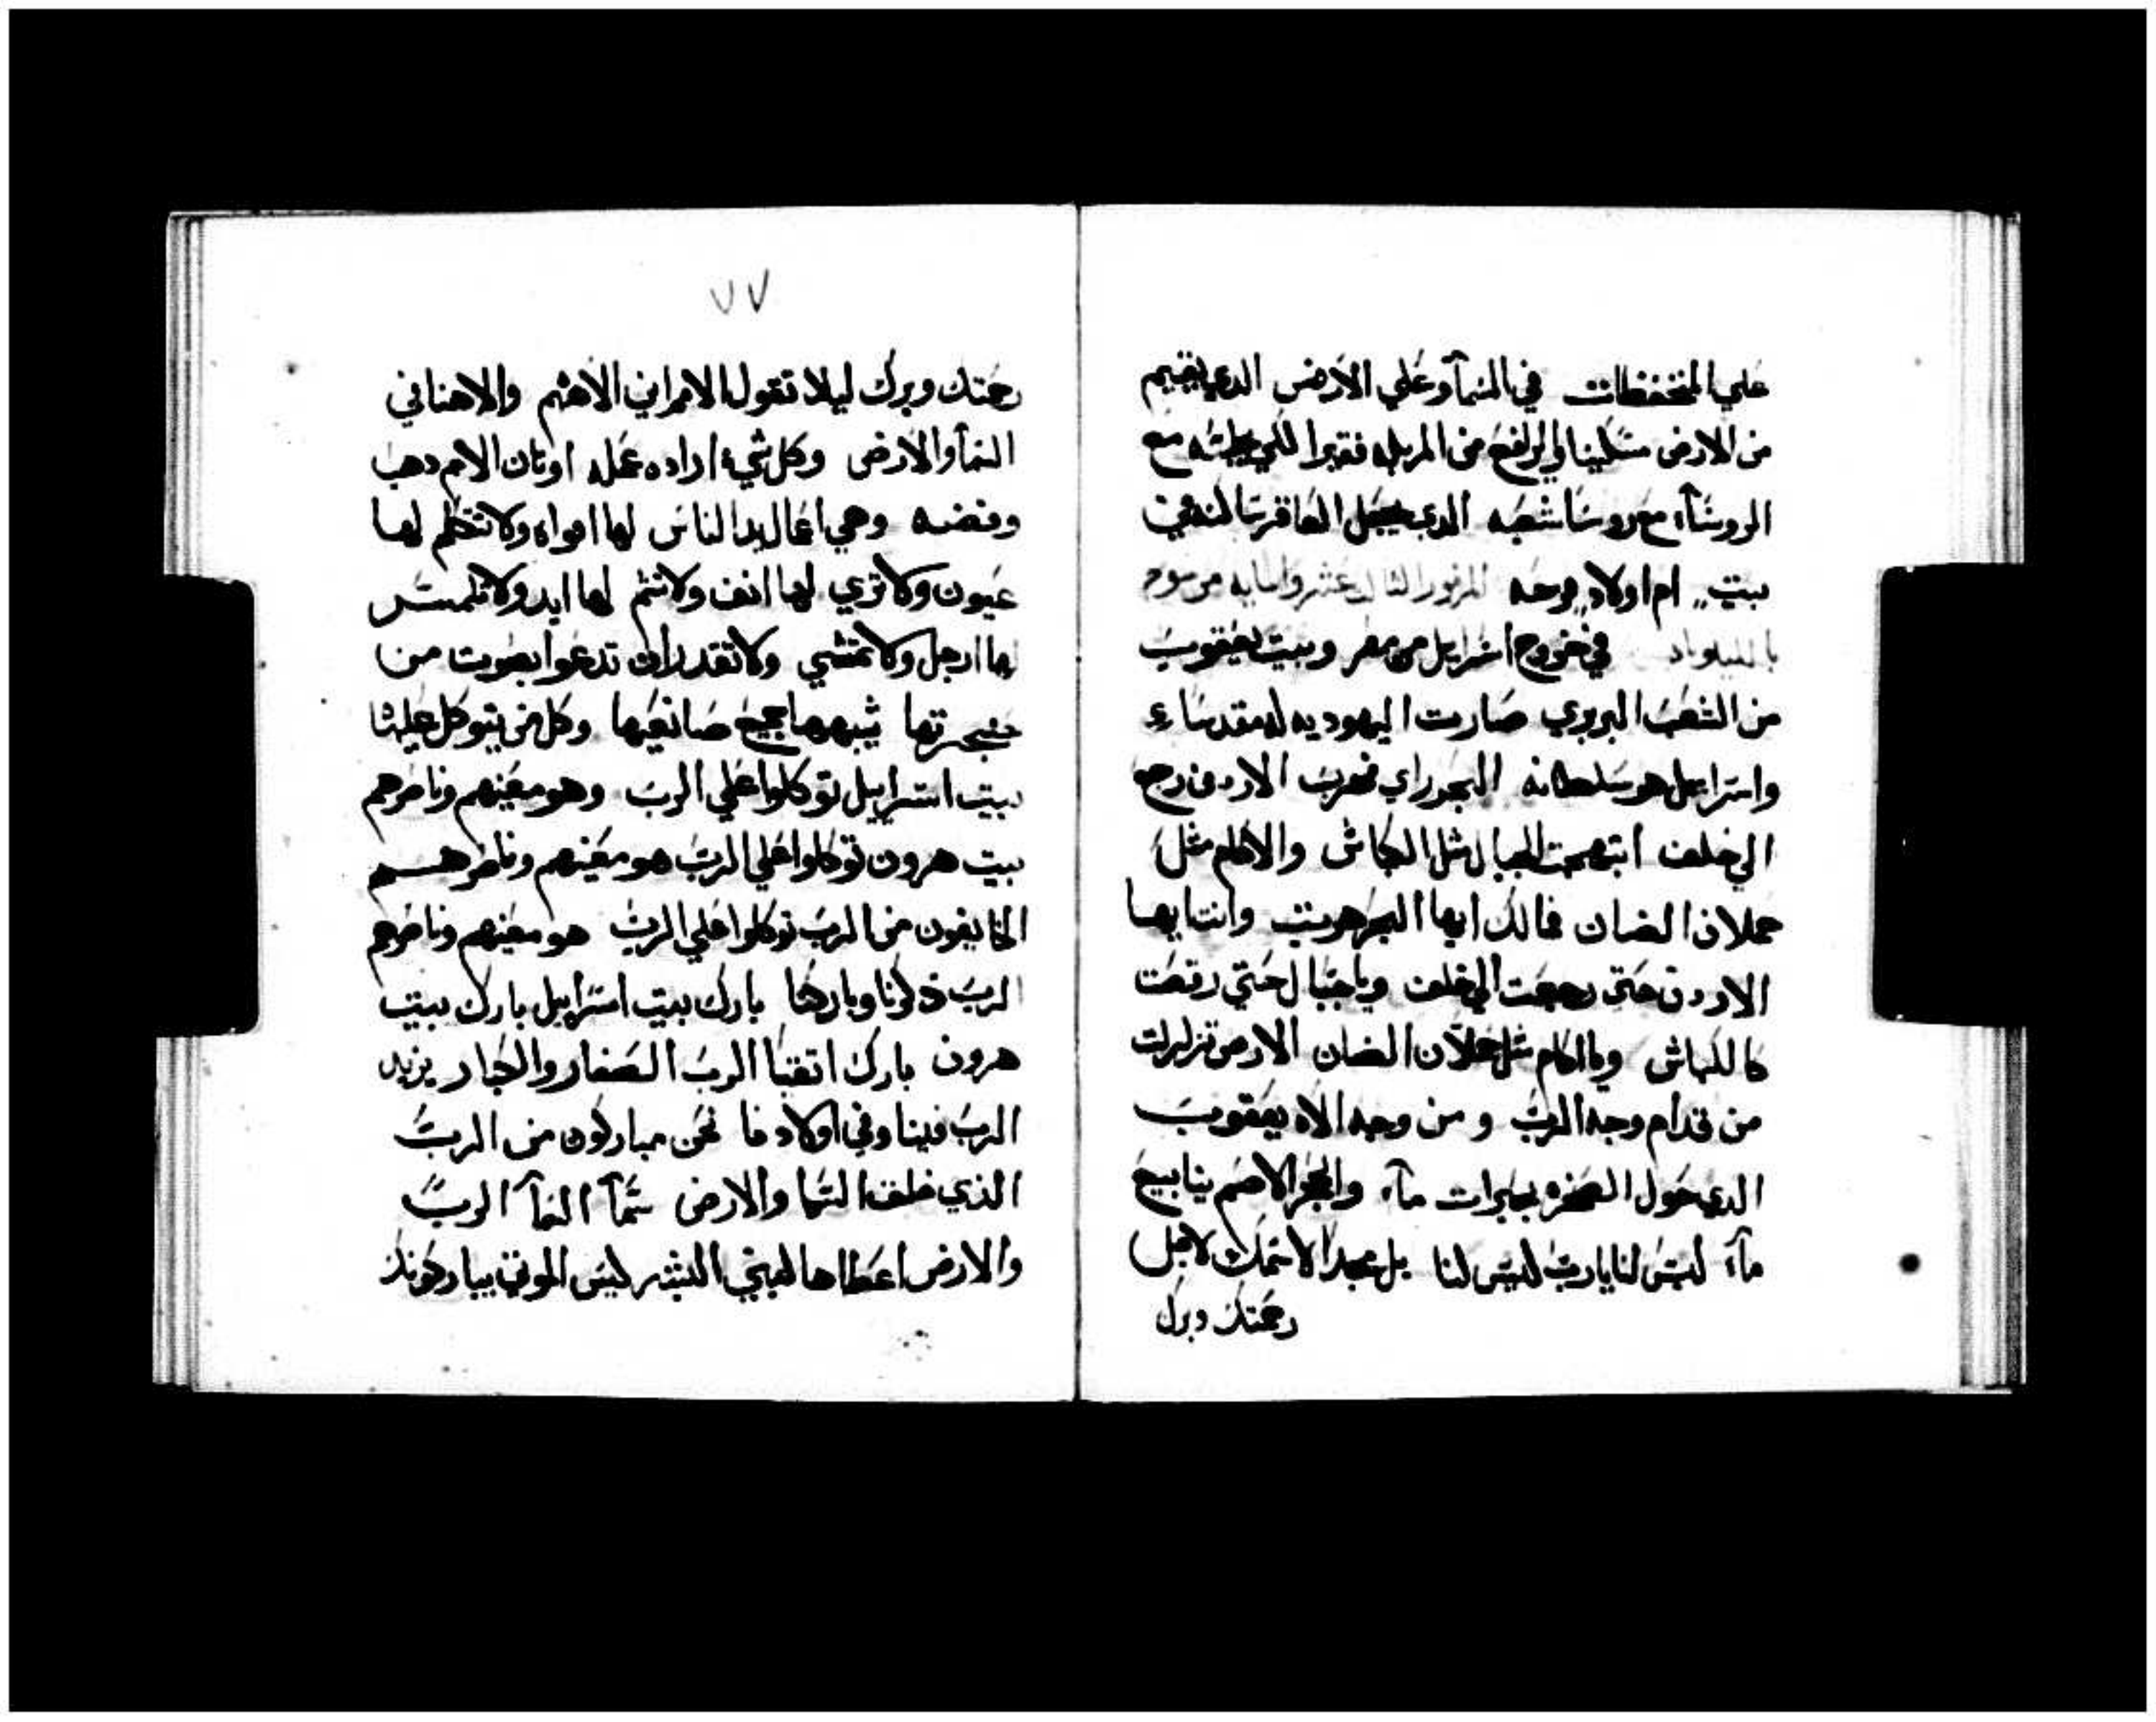 علي المنخفظات في السمآ وعلي الارض الدي يقيم
من الارض مسكينا والرافع من المزبله فقيرا لكي يجلسه مع
الروسآء مع روسا شعبه الدي يجعل العاقر ساكنه في
بيت ام اولاد فرحه المزمور الثالث عشر والمايه مرسوم
في خروج اسراييل من مصر وبيت يعقوب
من الشعب البربري صارت اليهوديه له مقدساء
واسراييل هو سلطانه البحر راي فهرب الاردن رجع
الي خلف ابتهجت الجبال مثل الكباش والاكام مثل
حملان الضان فمالك ايها البحر هربت وانت ايها
الاردن حتي رجعت الي خلف ويا جبال حتي رقصت
كالكباش ويا اكام مثل حملان الضان الارض تزلزلت
من قدام وجه الرب ومن وجه الاه يعقوب
الدي حول الصخره بحيرات مآء والحجر الاصم ينابيع
مآء ليس لنا يارب ليس لنا بل مجدا لاسمك لاجل
رحمتك وبرك
٧٧
رحمتك وبرك ليلا تقول الامم اين الاههم والاهنا في
السمآ والارض وكل شيء اراده عمله اوثان الامم دهب
وفضه وهي اعمال يدا الناس لها افواه ولا تتكلم لها
عيون ولا تري لها انف ولا تشم لها ايد ولا تلمس
لها ارجل ولا تمشي ولا تقدر ان تدعوا بصوت من
حنجرتها يشبهها جميع صانعيها وكل من يتوكل عليها
بيت اسراييل توكلوا علي الرب وهو معينهم وناصرهم
بيت هرون توكلوا علي الرب هو معينهم وناصرهم
الخايفون من الرب توكلوا علي الرب هو معينهم وناصرهم
الرب ذكرنا وباركنا بارك بيت اسراييل بارك بيت
هرون بارك اتقيا الرب الصغار والكبار يزيد
الرب فينا وفي اولادنا نحن مباركون من الرب
الذي خلق السما والارض سمآ السمآ للرب
والارض اعطاها لبني البشر ليس الموتي يباركونك